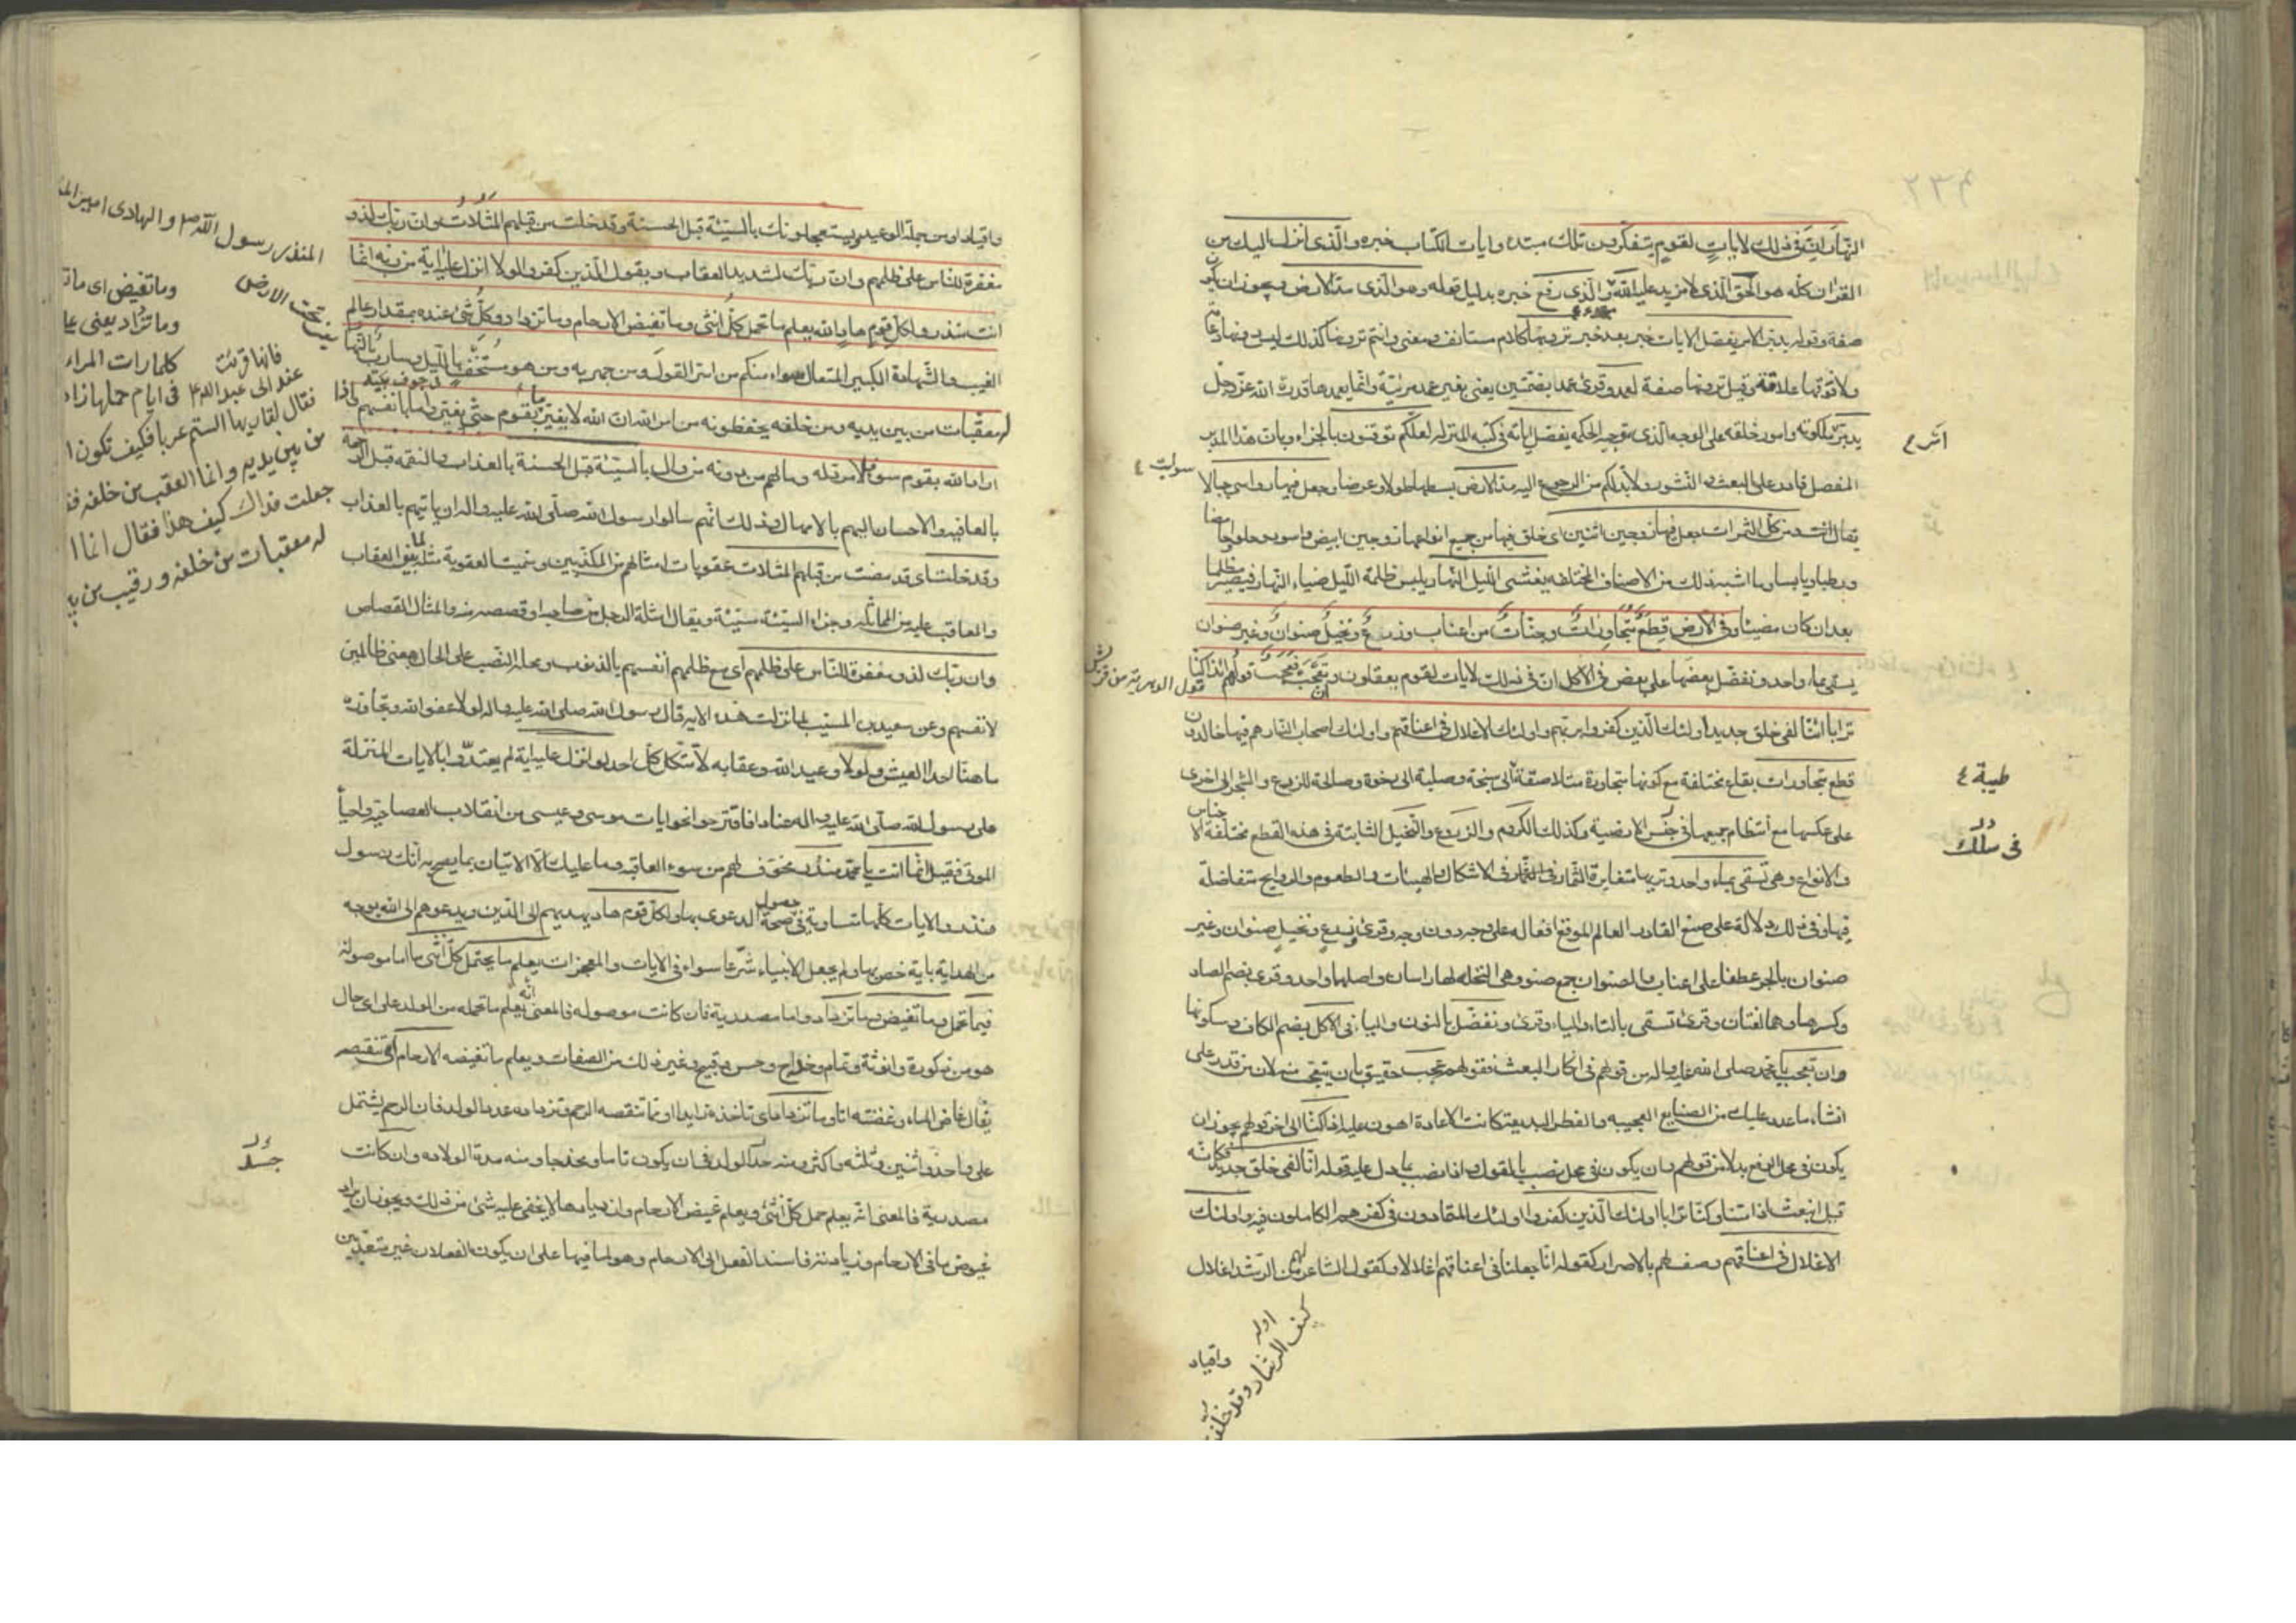 النهار ان فى ذلك لايات لقوم يتفكرون تلك مبتدء وايات الكتاب خبره والذى انزل اليك من
القران كله هو الحق الذى لا مزيد عليه الله الذى رفع خبره بدليل قوله وهو الذى مد الارض ويجوز ان يكون
صفة وقوله يدبر الامر يفصل الايات خبر بعد خبر ترونها كلام مستانف بمعنى وانتم ترونها كذلك ليس دونها دعامة
ولا فوقها علاقة وقيل ترونها صفة لعمد وقرئ عمد بضمتين يعنى بغير عمد مرئية وانما يعمدها قدرة الله عز وجل
يدبر ملكوته وامور خلقه على الوجه الذى توجبه الحكمه يفصل اياته فى كتبه المنزله لعلكم توقنون بالجزاء وبان هذا المدبر
المفصل قادر على البعث والنشور ولا بد لكم من الرجوع اليه مد الارض بسطها طولا وعرضا وجعل فيها رواسى جبالا
ومن كل الثمرات جعل فيها زوجين اثنين اى خلق فيها من جميع انواعها زوجين ابيض واسود وحلوا وحامضا
ورطبا ويابسا وما اشبه ذلك من الاصناف المختلفه يغشى الليل النهار يلبس ظلمة الليل ضياء النهار فيصير مظلما
بعد ان كان مضيئا وفى الارض قطع متجاورات وجنات من اعناب وزرع ونخيل صنوان وغير صنوان
يسقى بماء واحد ونفضل بعضها على بعض فى الاكل ان فى ذلك لايات لقوم يعقلون وان تعجب فعجب قولهم ائذا كنا
ترابا ائنا لفى خلق جديد اولئك الذين كفروا بربهم واولئك الاغلال فى اعناقهم واولئك اصحاب النار هم فيها خالدون
قطع متجاورات بقاع مختلفة مع كونها متجاورة متلاصقة الى سبخة وصلبة الى رخوة وصالحة للزرع والشجر الى اخرى
على عكسها مع انتظام جميعها فى جنس الارضية وكذلك الكروم والزروع والنخيل الثابتة فى هذه القطع مختلفة الاجناس
والانواع وهى تسقى بماء واحد وتريها متغايرة الثمار فى الاشكال والهيئات والطعوم والروايح متفاضلة
فيها وفى ذلك دلالة على صنع القادر العالم الموقع افعاله على وجه دون وجه وقرئ وزرع ونخيل صنوان وغير
صنوان بالجر عطفا على اعناب والصنوان جمع صنو وهى النخله لها راسان واصلها واحد وقرئ بضم الصاد
وكسرها وهما لغتان وقرئ تسقى بالتاء والياء وقرئ ونفضل بالنون والياء فى الاكل بضم الكاف وسكونها
وان تعجب يا محمد صلى الله عليه واله من قولهم فى انكار البعث فقولهم عجيب حقيق بان يتعجب منه لان من قدر على
انشاء ما عدد عليك من الصنايع العجيبه والفطر البديعة كانت الاعادة اهون عليه ائذا كنا الى اخر قولهم يجوز ان
يكون فى محل الرفع بدلا من قولهم وان يكون فى محل نصب بالقول واذا نصب بما دل عليه قوله ائنا لفى خلق جديد فكانه
قيل انبعث اذا متنا وكنا ترابا اولئك الذين كفروا اولئك المتمادون فى كفرهم الكاملون فيه واولئك
الاغلال فى اعناقهم وصفهم بالاصرار كقوله انا جعلنا فى اعناقهم اغلالا وكقول الشاعر لهم عن الرشد اغلال
واقياد
اوله
كيف الرشاد وقد خلفت
سولت ٤
طيبة ٤
فى سلك
واقياد او من جملة الوعيد ويستعجلونك بالسيئة قبل الحسنة وقد خلت من قبلهم المثلات وان ربك لذو
مغفرة للناس على ظلمهم وان ربك لشديد العقاب ويقول الذين كفروا لولا انزل عليه اية من ربه انما
انت منذر ولكل قوم هاد الله يعلم ما تحمل كل انثى وما تغيض الارحام وما تزداد وكل شئ عنده بمقدار عالم
الغيب والشهادة الكبير المتعال سواء منكم من اسر القول ومن جهر به ومن هو مستخف بالليل وسارب بالنهار
له معقبات من بين يديه ومن خلفه يحفظونه من امر الله ان الله لا يغير ما بقوم حتى يغيروا ما بانفسهم واذا
اراد الله بقوم سوءا فلا مرد له وما لهم من دونه من وال بالسيئة قبل الحسنة بالعذاب والنقمه قبل الرحمه
بالعافيه والاحسان اليهم بالامهال وذلك انهم سالوا رسول الله صلى الله عليه واله ان ياتيهم بالعذاب
وقد خلت اى قد مضت من قبلهم المثلات عقوبات امثالهم من المكذبين وسميت العقوبة مثلة لما بين العقاب
والمعاقب عليه من المماثله وجزاء السيئة سيئة ويقال امثلة الرجل من صاحبه اوقصصه منه والمثال القصاص
وان ربك لذو مغفرة للناس على ظلمهم اى مع ظلمهم انفسهم بالذنوب ومحله النصب على الحال بمعنى ظالمين
لانفسهم وعن سعيد بن المسيب لما نزلت هذه الايه قال رسول الله صلى الله عليه واله لولا عفو الله وتجاوزه
ما هنا احدا العيش ولولا وعيد الله وعقابه لاتكل كل احد لولا انزل عليه اية لم يعتدوا بالايات المنزلة
على رسول الله صلى الله عليه واله عنادا فاقترحوا نحو ايات موسى وعيسى من انقلاب العصا حية واحياء
الموتى فقيل انما انت يا محمد منذر مخوف لهم من سوء العاقبه وما عليك الا الاتيان بما يصح به انك رسول
منذر والايات كلها متساوية فى حصول صحة الدعوى بها ولكل قوم هاد يهديهم الى الدين ويدعوهم الى الله بوجه
من الهداية باية خص بها ولم يجعل الانبياء شرعا سواء فى الايات والمعجزات يعلم ما يحتمل كل انثى ما اما موصولة
فيما تحمل وما تغيض وما تزداد واما مصدرية فان كانت موصوله فالمعنى انه يعلم ما تحمله من الولد على اى حال
هو من ذكورة وانوثة وتمام وخداج وحسن وقبح وغير ذلك من الصفات ويعلم ما تغيضه الارحام اى تنقصه
يقال غاض الماء وغضته انا وما تزداد اى تاخذه زايدا ومما تنقصه الرحم وتزداده عدد الولد فان الرحم يشتمل
على واحد واثنين وثلثه واكثر ومنه جسد الولد فان يكون تاما ومخدجا ومنه مدة الولاده وان كانت
مصدرية فالمعنى انه يعلم حمل كل انثى ويعلم غيض الارحام وازديادها لا يخفى عليه شئ من ذلك ويجوز ان يراد
غيوض ما فى الارحام وزيادته فاسند الفعل الى الارحام وهو لما فيها على ان يكون الفعلان غير متعديين
المنذر رسول الله ص والهادى امير
وما تغيض اى
وما تزداد يعنى
كلما رات
فى ايام حملها
فانها قرئت
عند ابى عبد الله ع
فقال لقاريها الستم عربا فكيف تكون
من بين يديه وانما العقب من خلفه
جعلت فداك كيف هذا فقال انما
له معقبات من خلفه ورقيب من
تحت الارض
فى جوف بيته
جسد